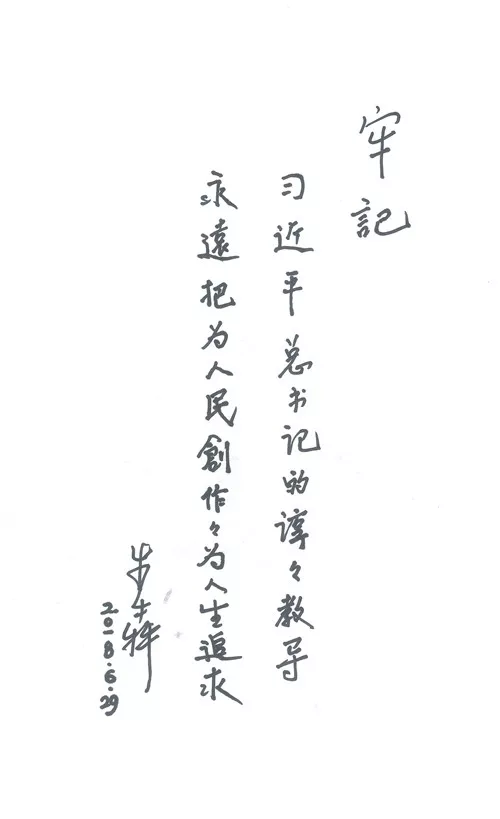 牢記
习近平总书记的谆々教导
永遠把为人民創作々为人生追求
牛犇
2018.6.29